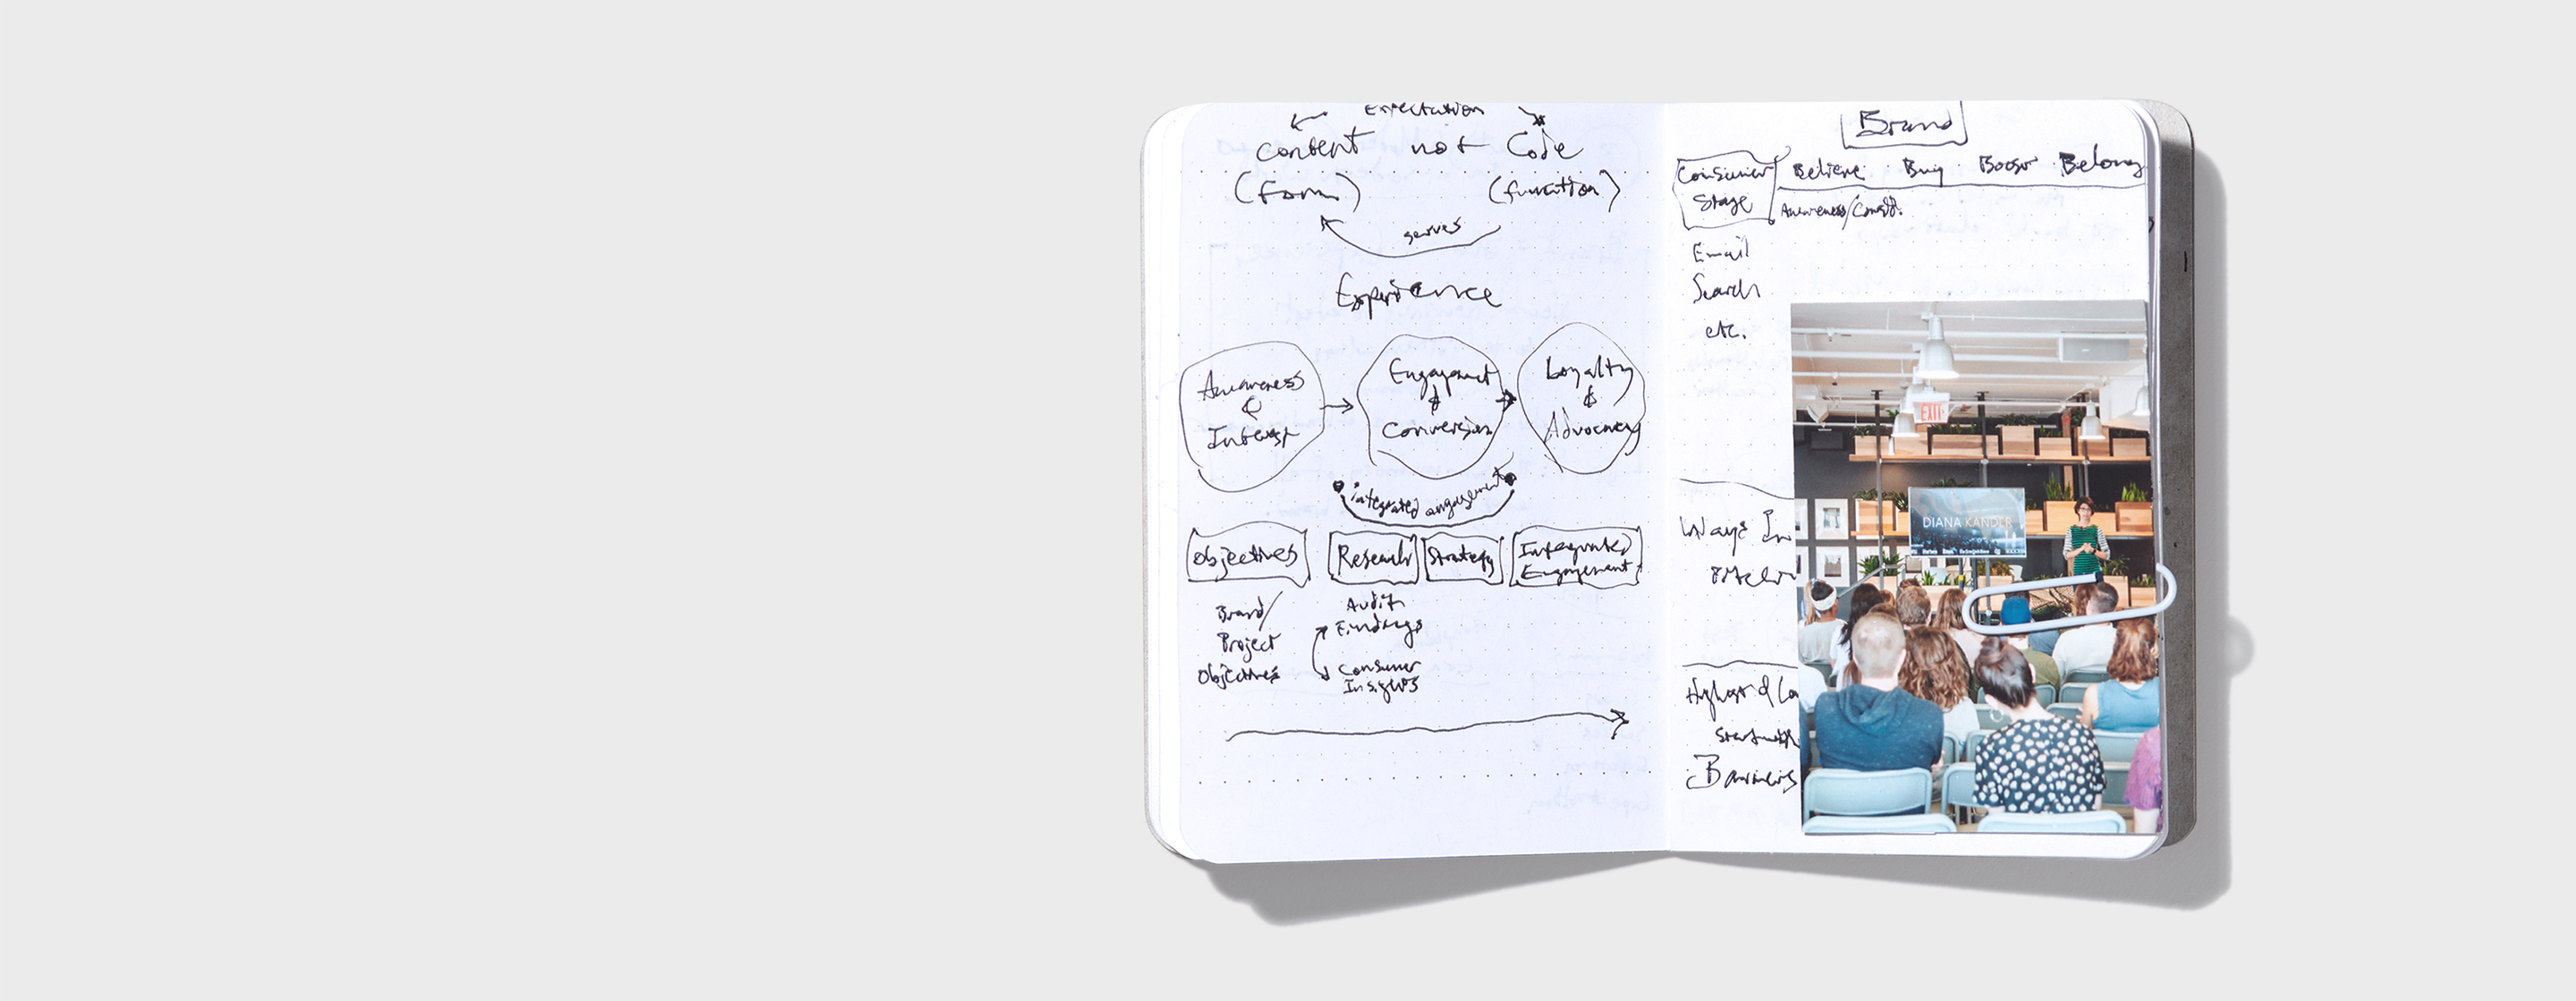 Expectation
Content not Code
(form) (function)
serves
Experience
Awareness
&
Interest
Engagement
&
Conversion
Loyalty
&
Advocacy
integrated engagement
Objectives
Research
Strategy
Integrated
Engagement
Brand/
Project
Objectives
Audit
Findings
Consumer
Insights
Brand
Consumer
Stage
Believe Buy Boost Belong
Awareness/
Email
Search
etc.
Ways In
Highest &
Start with
Barriers
EXIT
DIANA KANDER